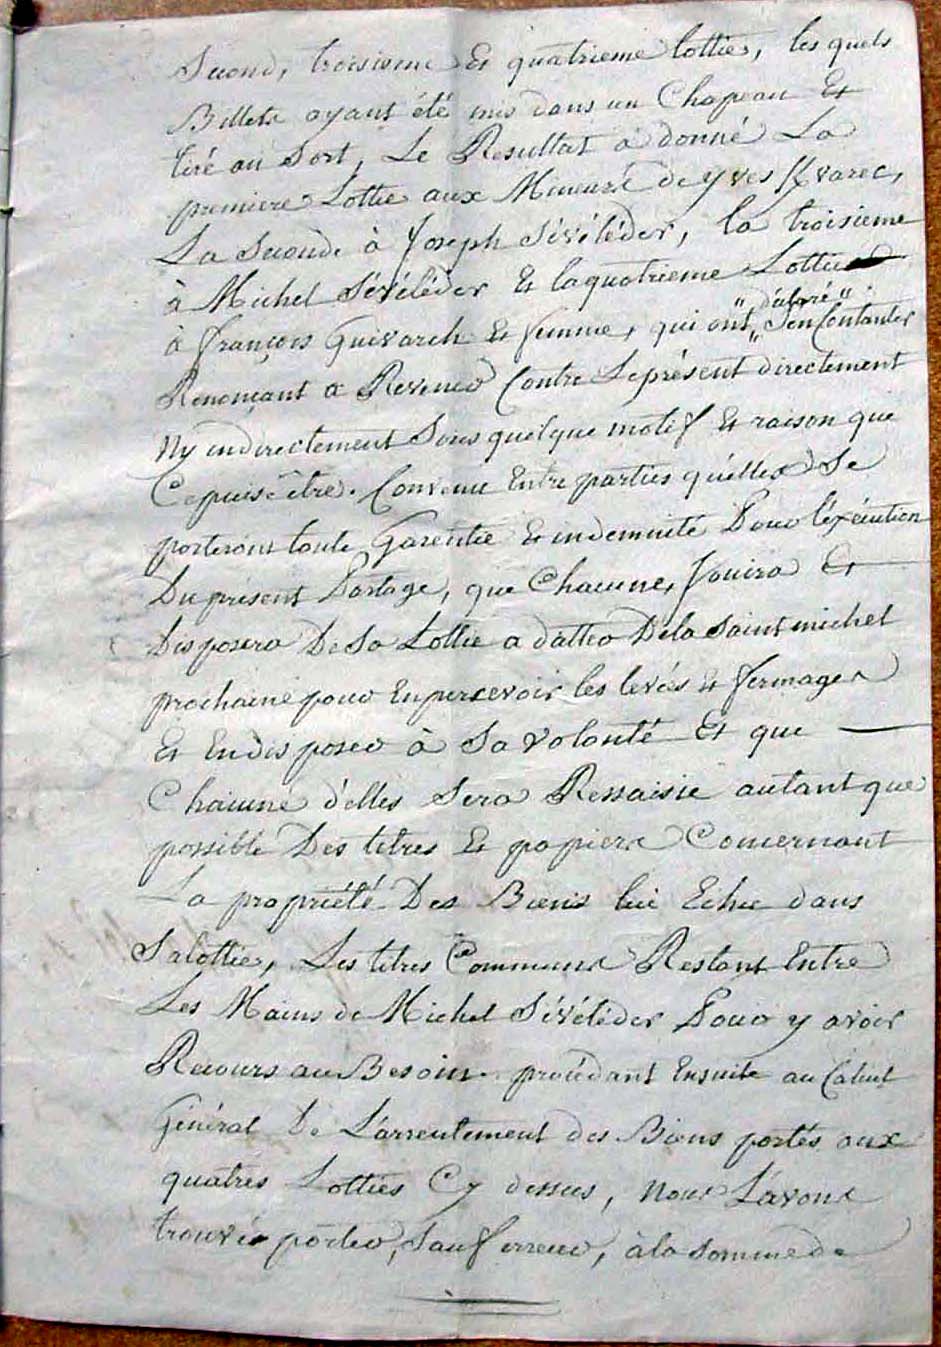 Second, troisieme Et quatrieme lottie, les quels
Billets ayant été mis dans un Chapeau Et
tiré au Sort, Le Resultat a donné La
premiere Lottie aux Mineurs de yves Kvarec,
La Seconde à Joseph Sévéléder, la troisieme
à Michel Sévéléder Et la quatrieme Lottie
à françois Guivarch Et femme, qui ont " déclaré "
" S'en Contenter
Renonçant a Revenir Contre Le présent directement
Ny indirectement Sous quelque motif Et raison que
Ce puisse être. Convenu Entre parties qu'elles Se
porteront toute Garentie Et indemnité Pour l'éxécution
Du présent Partage, que Chacune, Jouira Et
Disposera De Sa Lottie a datter De la Saint michel
prochaine pour En percevoir les levées Et fermages
Et En disposer à Sa volonté Et que
Chacune d'elles Sera Ressaisie autant que
possible Des titres Et papiers Concernant
La propriété Des Biens lui Echue dans
Sa lottie, Les titres Communs Restant Entre
Les Mains de Michel Sévéléder Pour y avoir
Recours au Besoin. procédant Ensuite au Calcul
Général De L'arrentement des Biens portés aux
quatres Lotties Cy dessus, nous L'avons
trouvé porter, Sauf erreur, à la Somme de